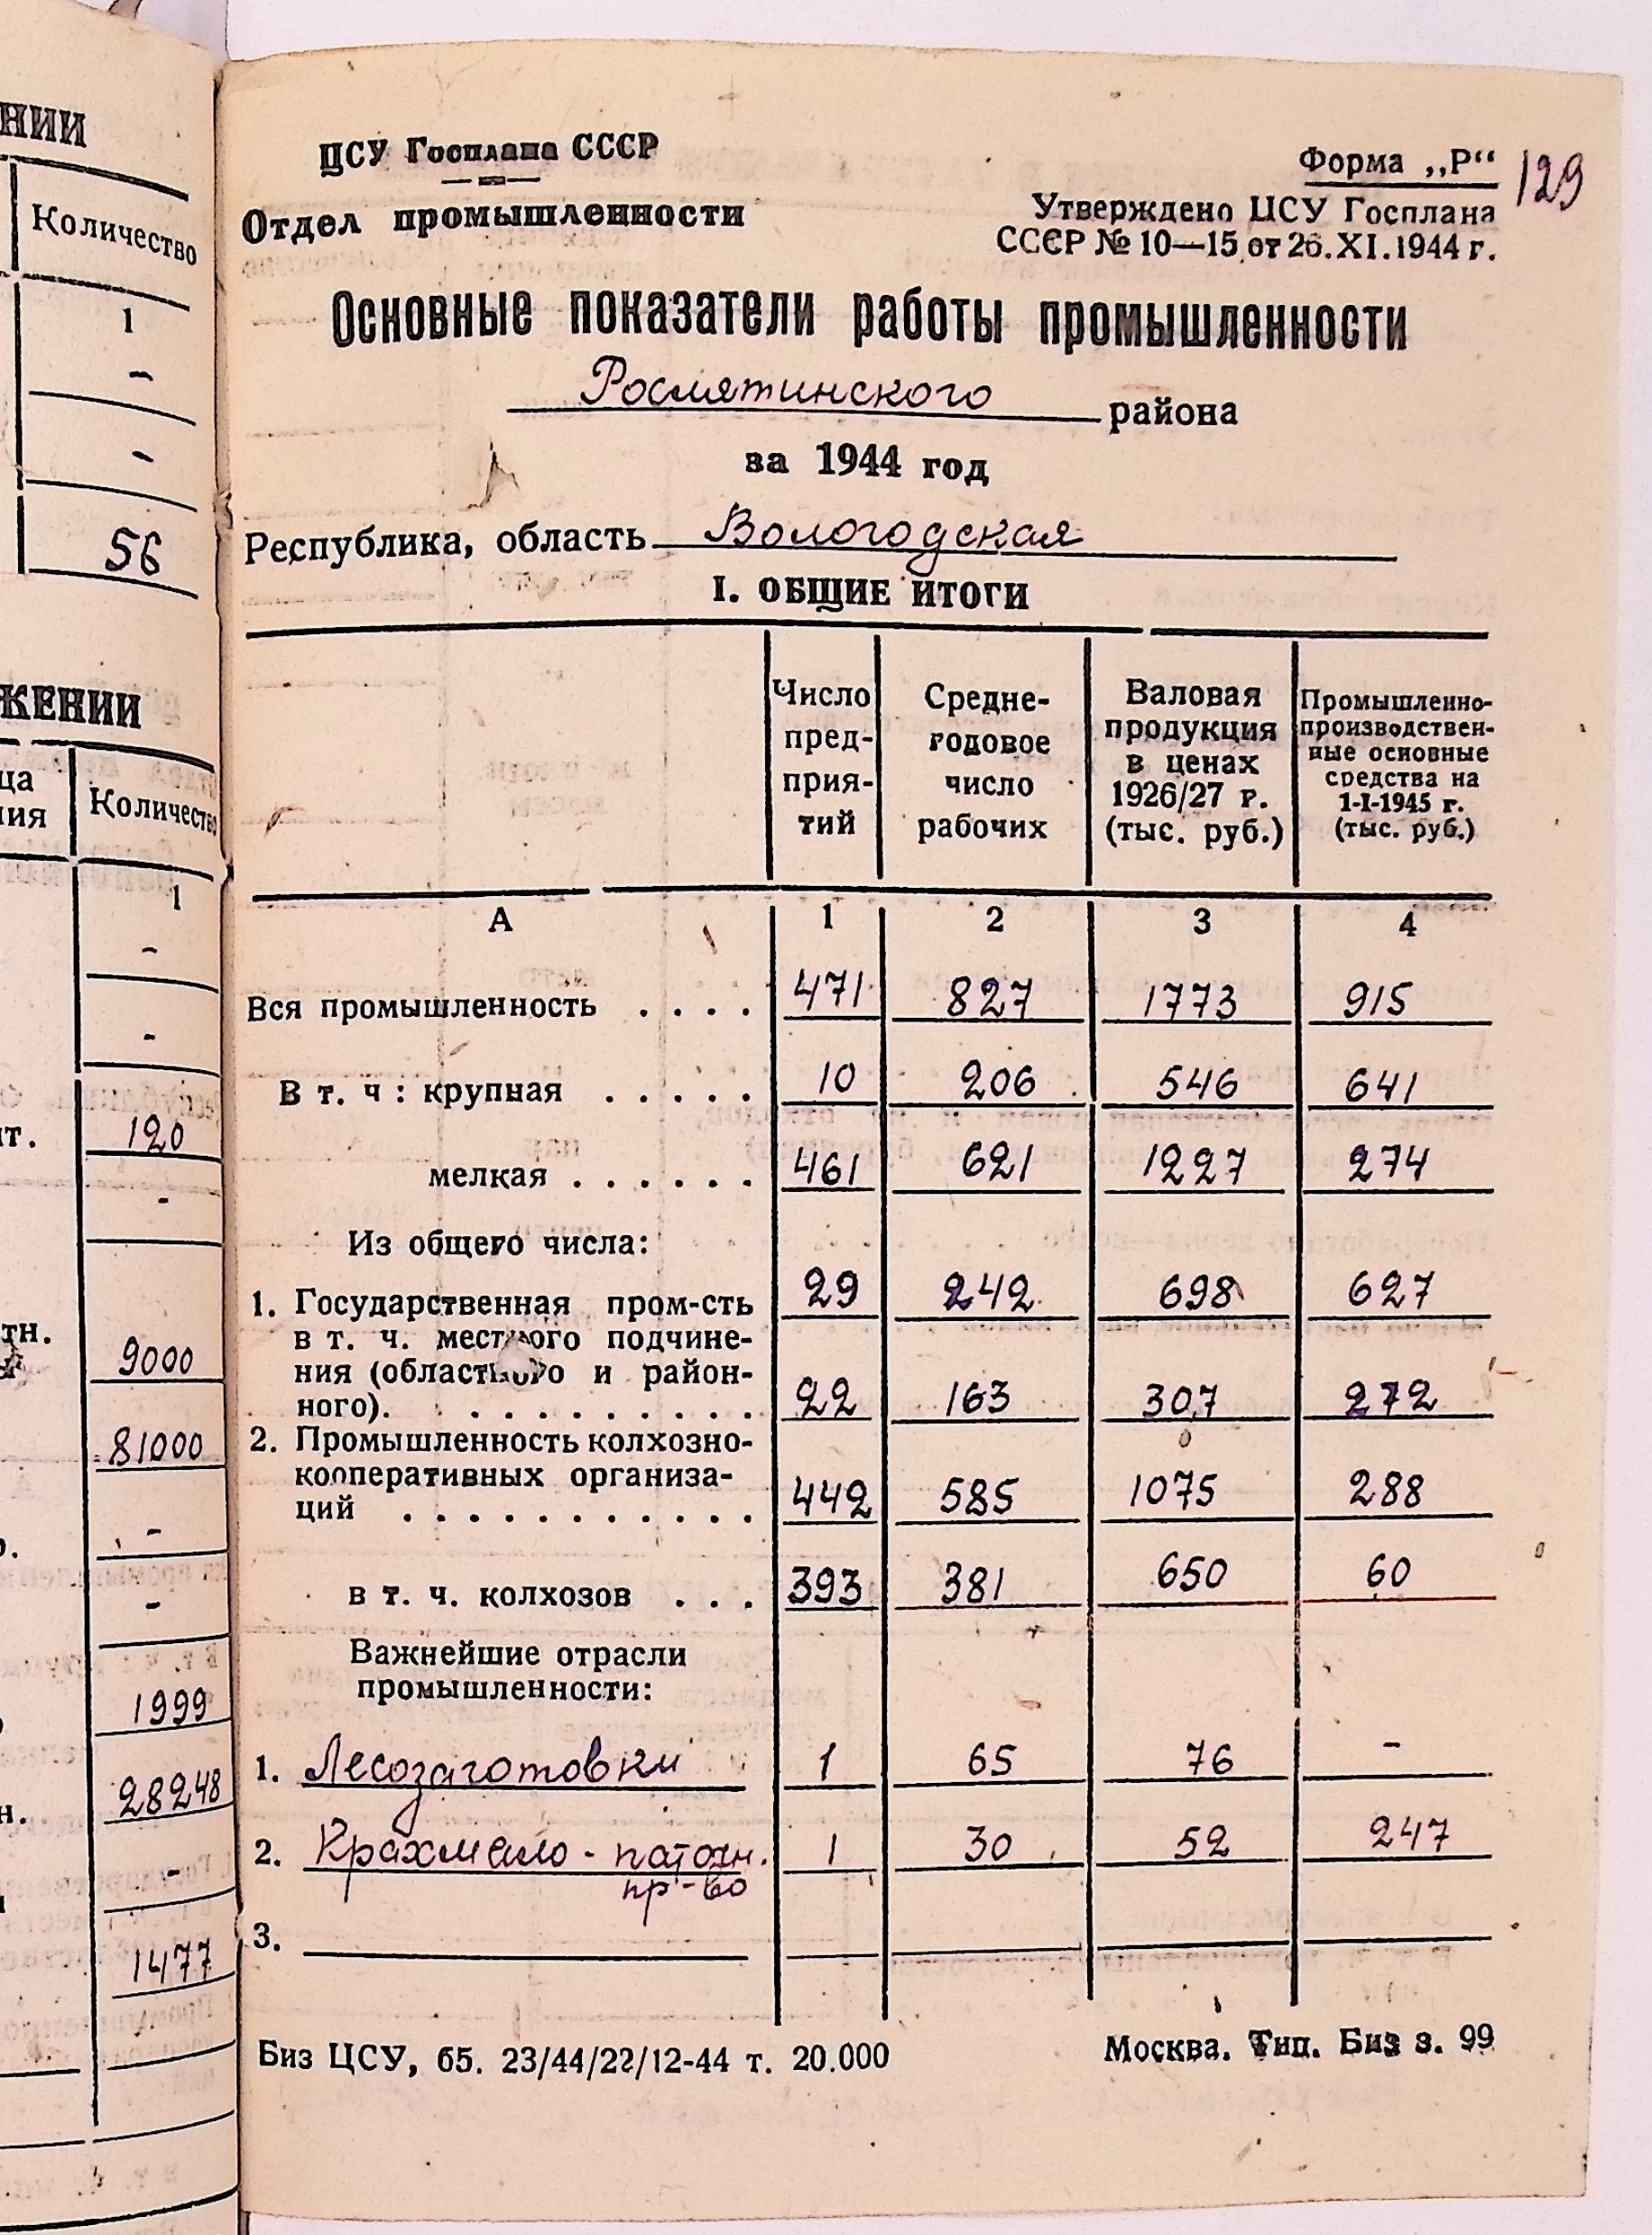 НИИ
Количество
1
-
-
56
ЖЕНИИ
Количество
1
-
-
120
-
тн.
9000
81000
-
-
1999
28248
-
1477
ЦСУ Госплана СССР
Отдел промышленности
Форма „Р“ 129
Утверждено ЦСУ Госплана
СССР № 10—15 от 26.XI.1944 г.
Основные показатели работы промышленности
Рослятинского района
за 1944 год
Республика, область Вологодская
I. ОБЩИЕ ИТОГИ
Число пред-прия-тий
Средне-годовое число рабочих
Валовая продукция в ценах 1926/27 г. (тыс. руб.)
Промышленно-производствен-ные основные средства на 1-I-1945 г. (тыс. руб.)
А 1 2 3 4
Вся промышленность . . . . 471 827 1773 915
В т. ч : крупная . . . . . 10 206 546 641
мелкая . . . . . . 461 621 1227 274
Из общего числа:
1. Государственная пром-сть 29 242 698 627
в т. ч. местного подчине-
ния (областного и район-
ного). . . . . . . . . . 22 163 307 272
2. Промышленность колхозно-
кооперативных организа-
ций . . . . . . . . . . . 442 585 1075 288
в т. ч. колхозов . . . 393 381 650 60
Важнейшие отрасли
промышленности:
1. Лесозаготовки 1 65 76 -
2. Крахмало - паточн. 1 30 52 247
пр-во
3.
Биз ЦСУ, б5. 23/44/22/12-44 т. 20.000
Москва. Тип. Биз з. 99